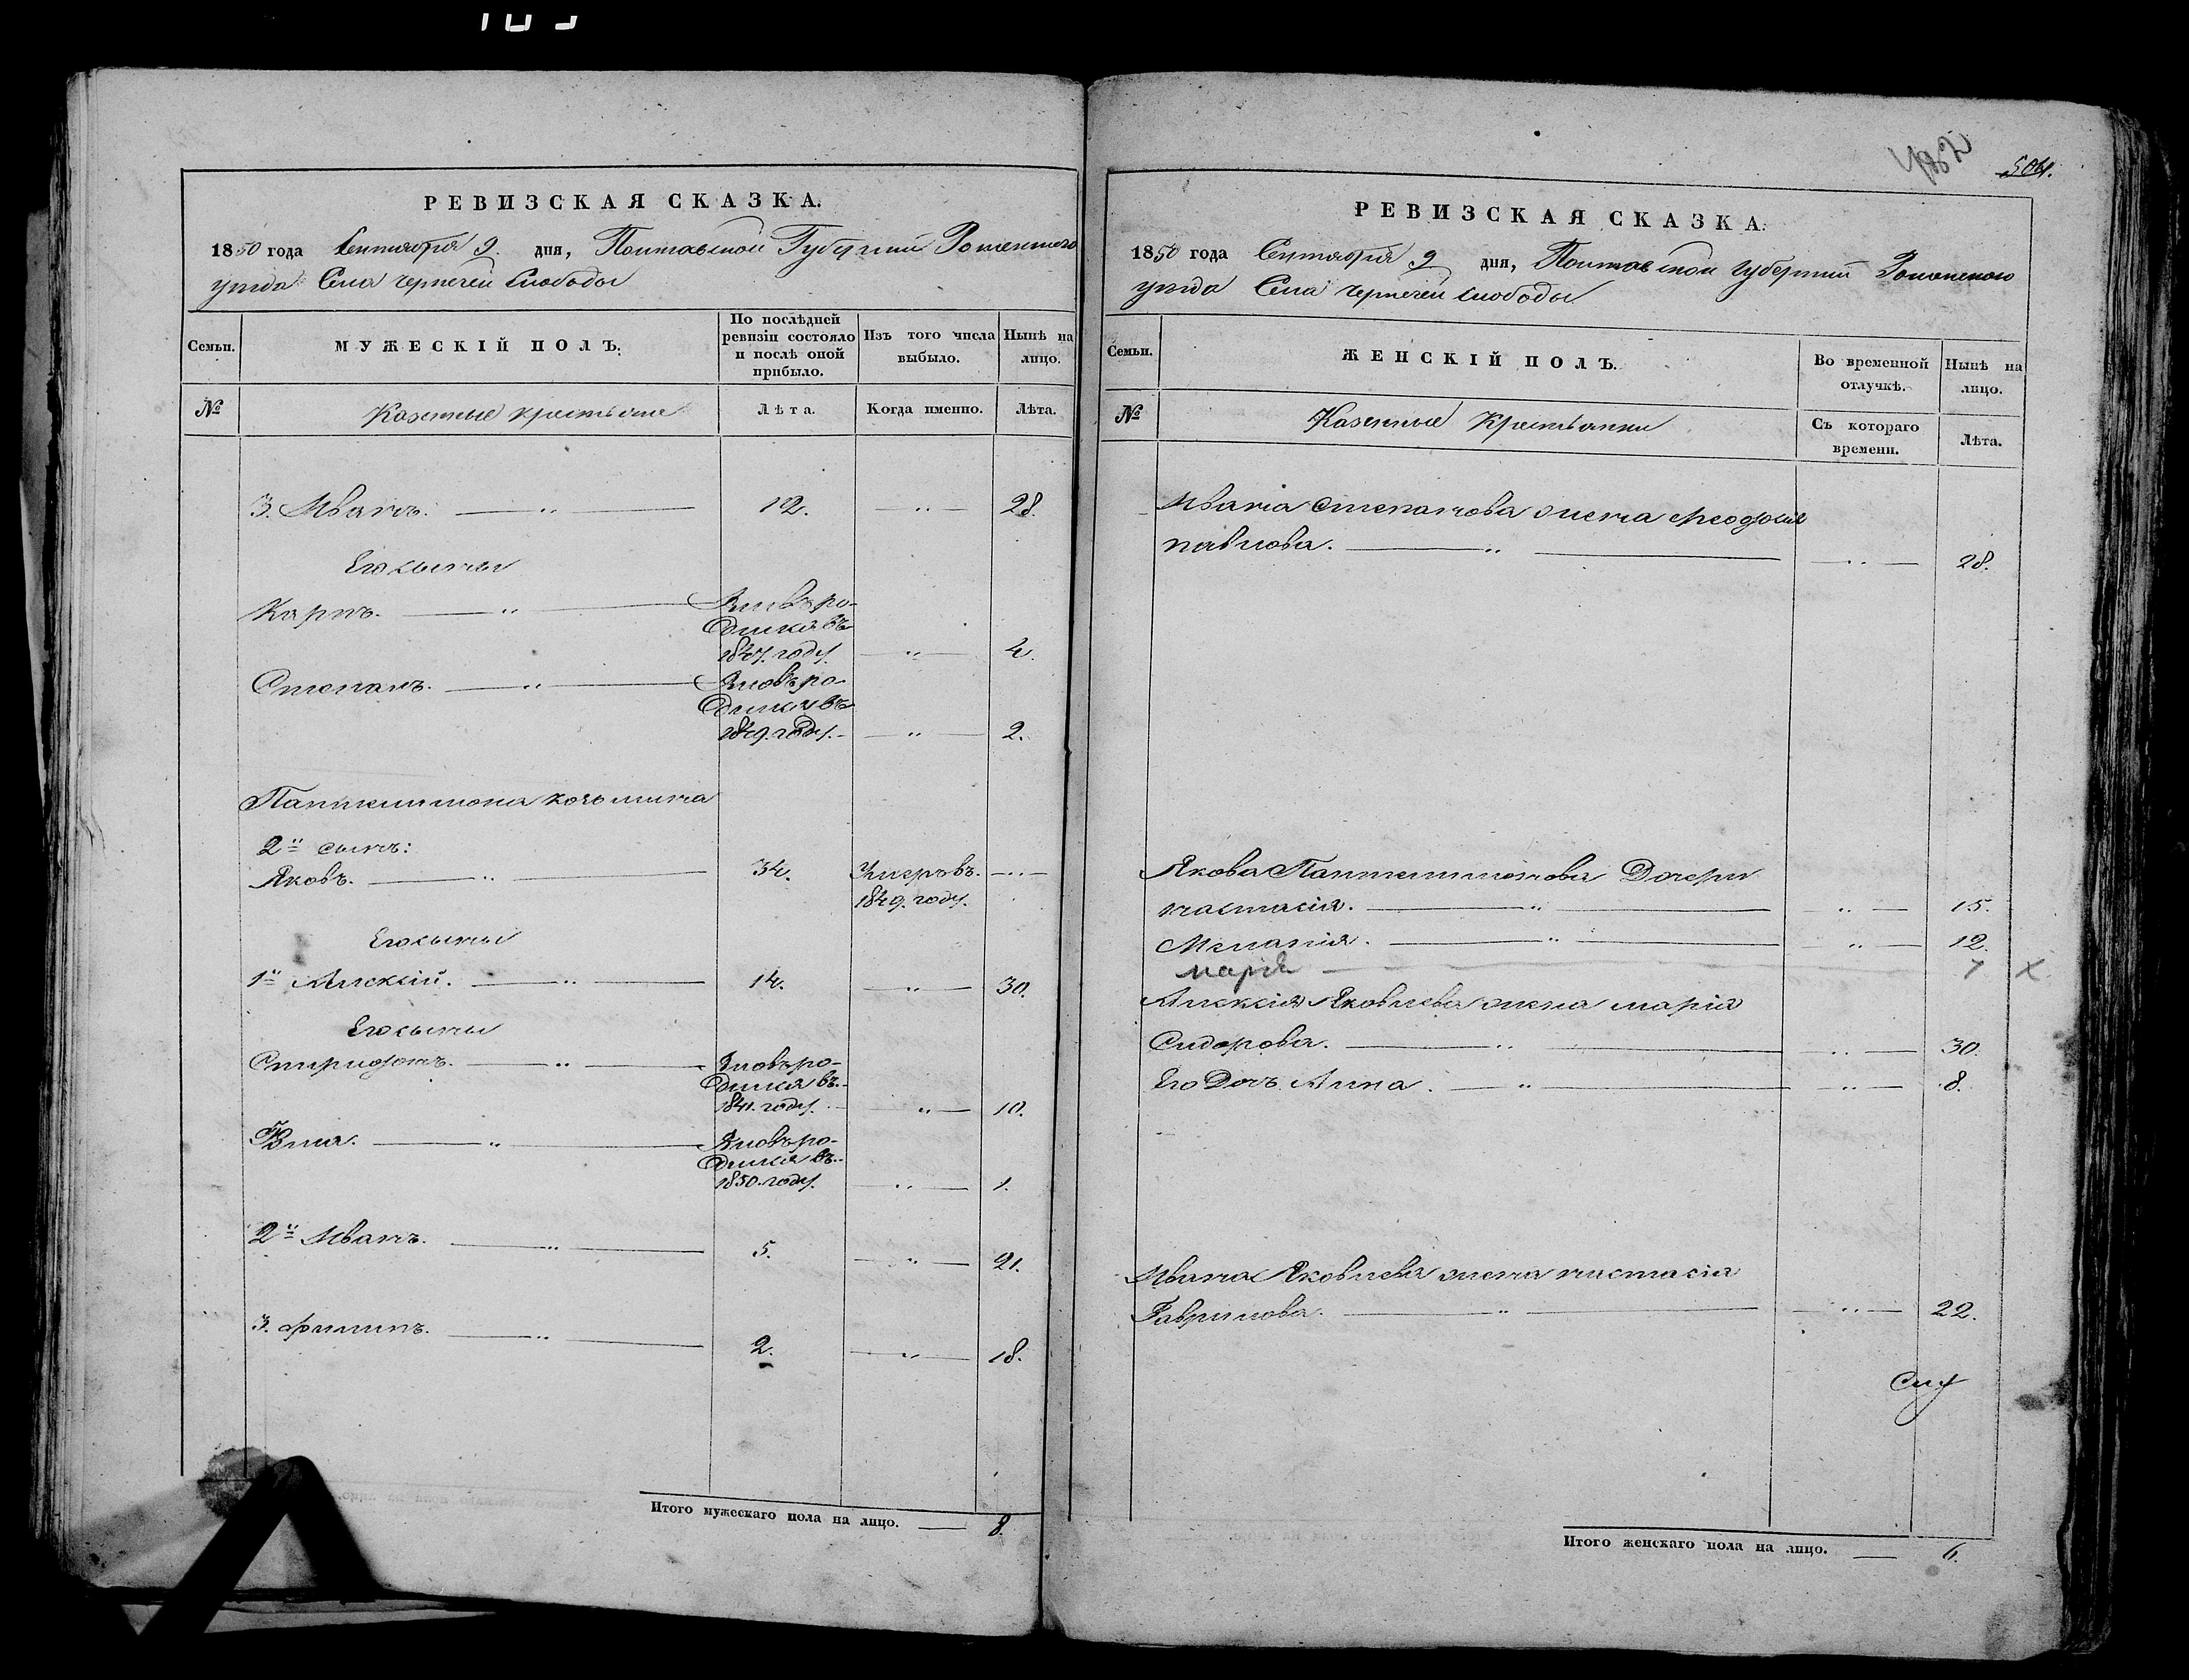 РЕВИЗСКАЯ СКАЗКА.
1850 года Сентября 9. дня, Полтавской Губерніи Роменского
уезда Села Чернечей Слободы
Семьи.
МУЖЕСКІЙ ПОЛЪ.
По послѣдней
ревизіи состояло
и послѣ оной
прибыло.
Изъ того числа
выбыло.
Нынѣ на
лицо.
№
Казенные крестьяне
Лѣта.
Когда именно.
Лѣта.
3. Иванъ. 12. 28.
Его сыны
Карпъ. Вновь ро-
дился въ
1847. году. 4.
Степанъ. Вновь ро-
дился въ
1849. году. 2.
Пантелимона
2й сынъ:
Яковъ. 34. Умеръ въ
1849. году.
Его сыны
1й Алексій. 14. 30.
Его сыны
Спиридонъ. Вновь ро-
дился въ
1841. году. 10.
Вновь ро-
дился въ
1850. году. 1.
2й Иванъ. 5. 21.
3. Филипъ. 2. 18.
Итого мужескаго пола на лицо. 8.
504.
РЕВИЗСКАЯ СКАЗКА.
1850 года Сентября 9 дня, Полтавской губерніи Роменского
уезда Села Чернечей Слободы
Семьи.
ЖЕНСКІЙ ПОЛЪ.
Во временной
отлучкѣ.
Нынѣ на
лицо.
№
Казенные Крестьянки
Съ котораго
времени.
Лѣта.
Ивана Степанова жена Феодосия
павлова. 28.
Якова Пантелимонова Дочери
настасія. 15.
Меланія. 12.
марія 7 X
Алексія Яковлева жена марія
Сидорова. 30.
Его Дочь Анна. 8.
Ивана Яковлева жена настасія
Гаврилова. 22.
Итого женскаго пола на лицо. 6.